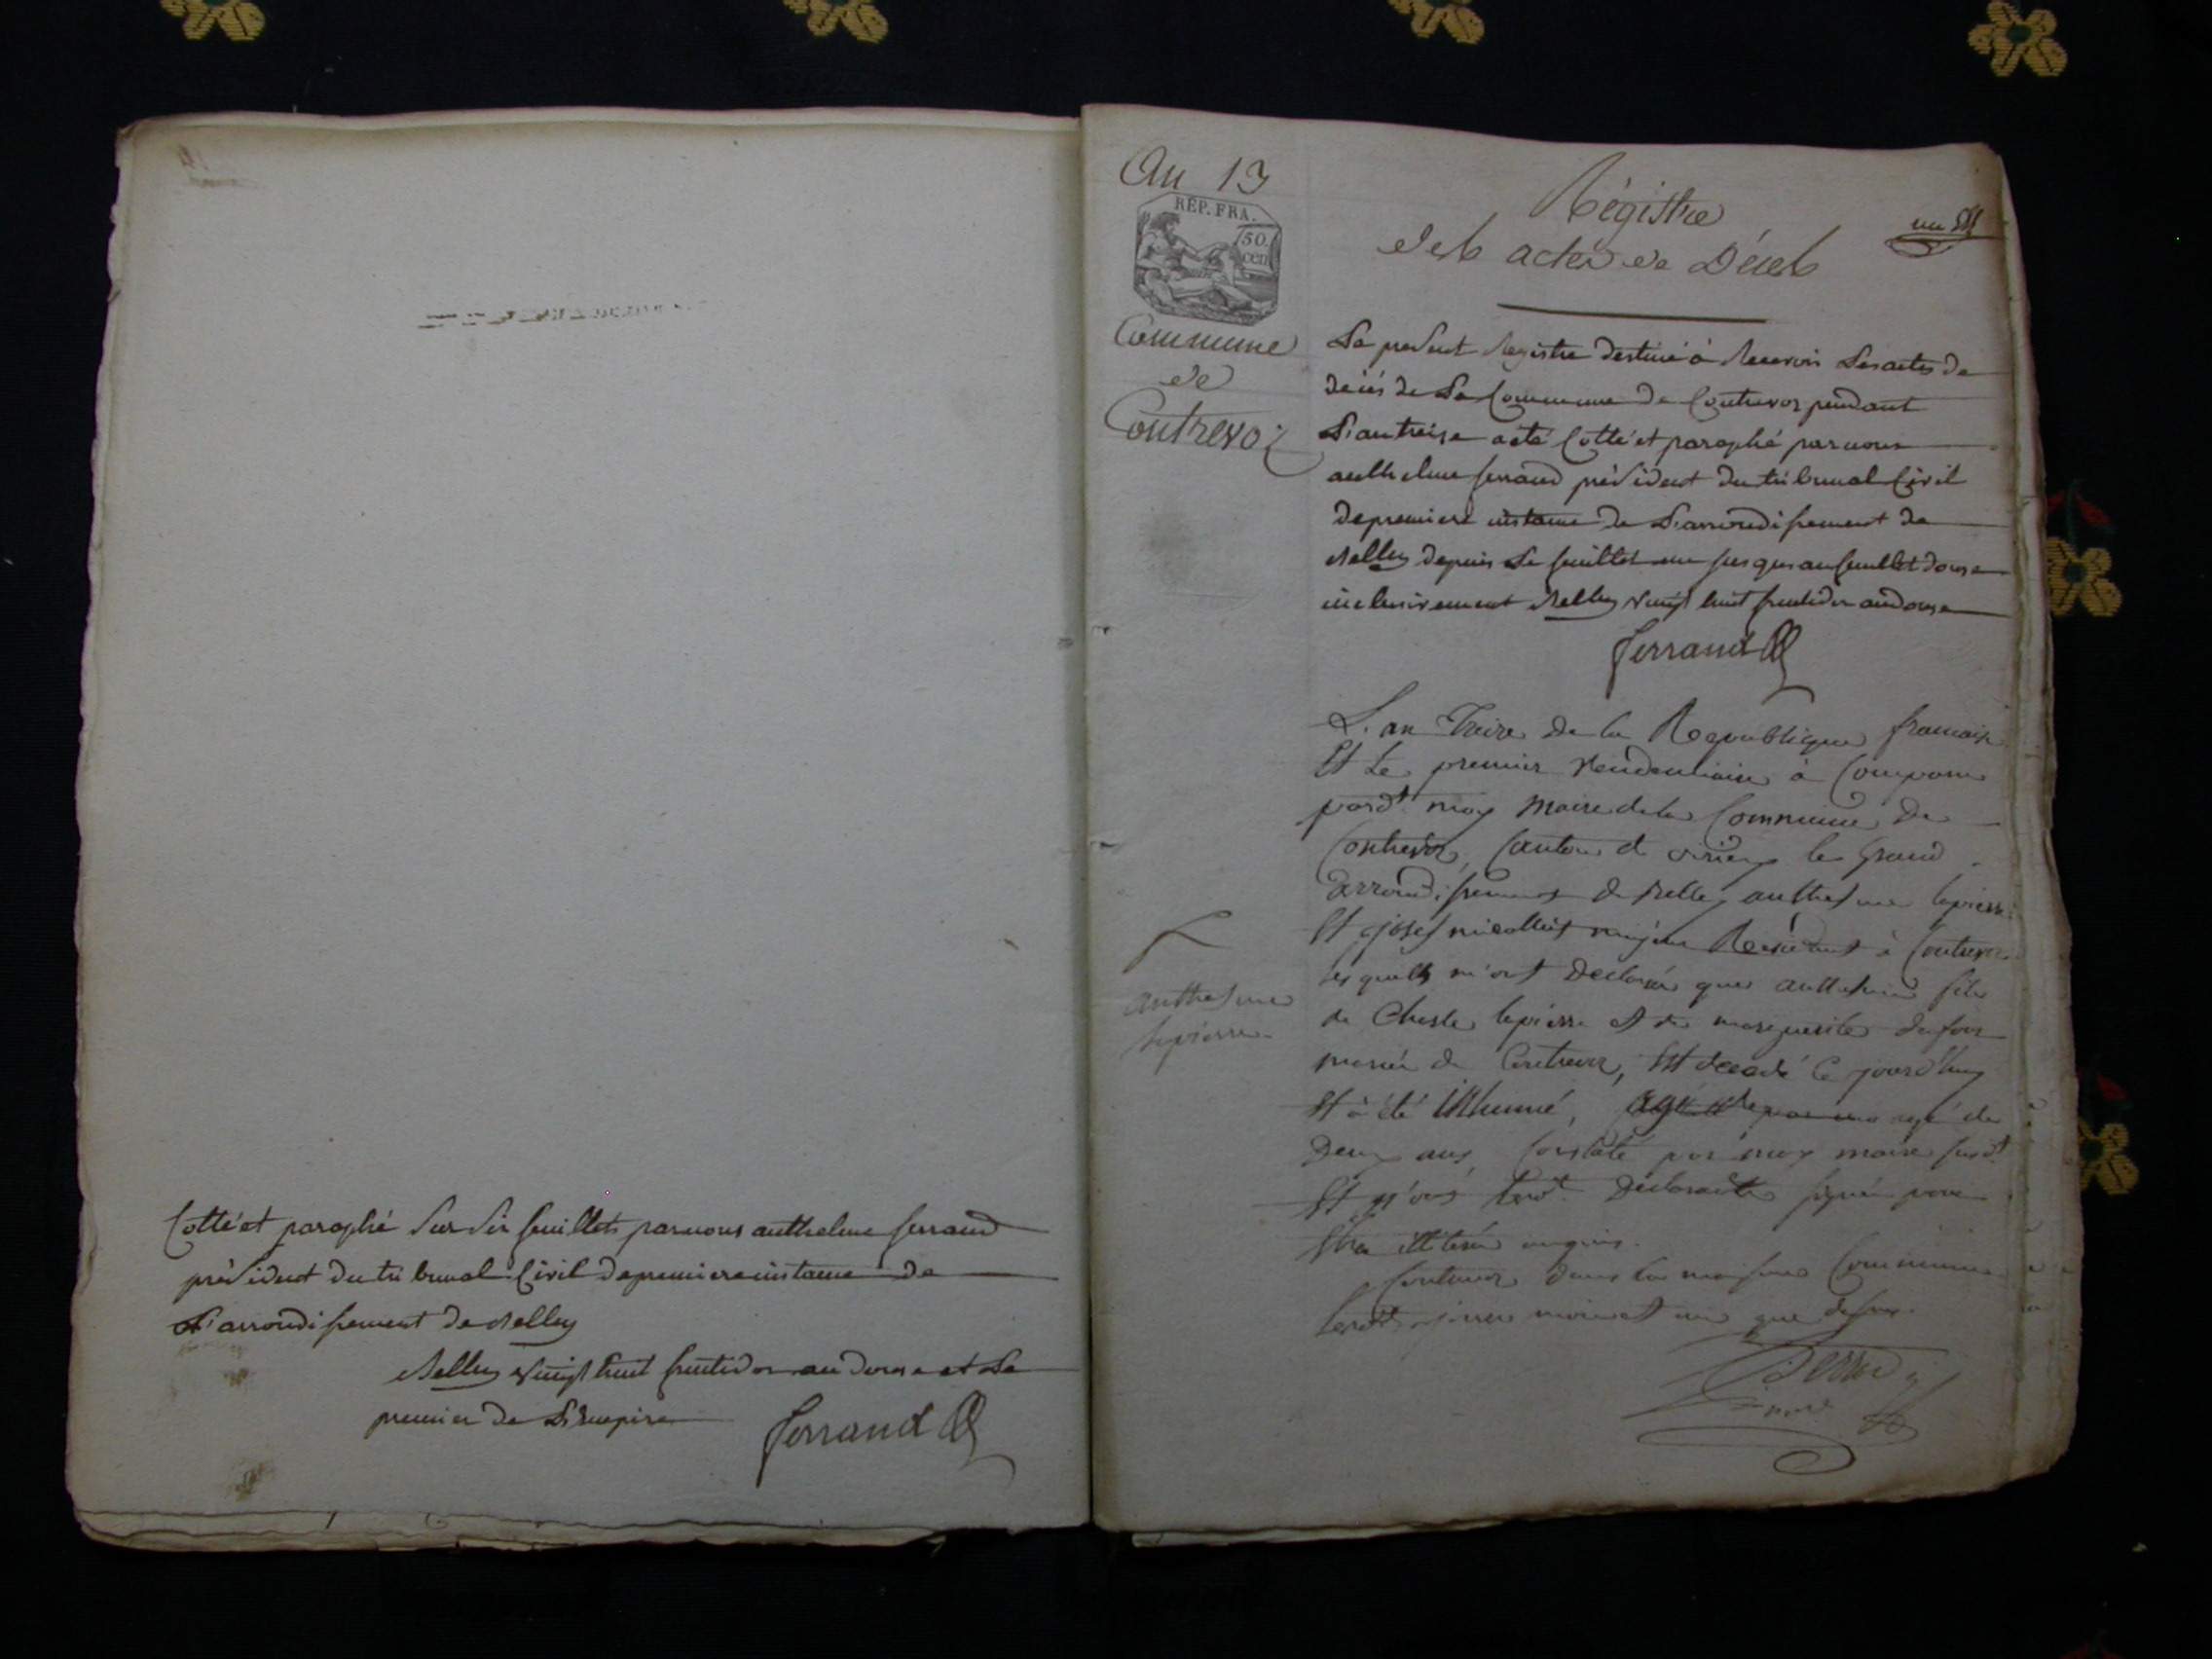 Cotté et paraphé sur six feuillets par nous anthelme ferrand
président du tribunal Civil de premiere instance de
L'arrondissement de Belley
Belley vingt huit fructidor an douze et Le
premier de L'Empire
ferrand
An 13
REP. FRA.
50.
cen
Commune
de
Contrevoz
Régistre
des actes de Décès
un
Le present Registre destiné à Recevoir Les actes de
décés de La Commune de Contrevoz pendant
L'an treize a été Cotté et paraphé par nous
anthelme ferrand président du tribunal Civil
de premiere instance de L'arrondissement de
Belley depuis Le feuillet un jusques au feuillet douze
inclusivement Belley vingt huit fructidor an douze
ferrand
L'an Treize de la Republique francaise
Et Le premier Vendemiaire à Comparu
pard.t moy Maire de la Commune de
Contrevoz, Canton de virieux le Grand
arrondissement de Belley anthelme lapierre
Et josef majeur Residant à Contrevoz
lesquels m'ont Declarér que anthelme fils
de Charle lapierre et de marguerite dufour
marié de Contrevoz, Est decedé Ce jourd'huy
Et à été inhumé, agé de
Deux ans, Constaté par moy maire susd.t
Et n'ont Lesd.t Declarants signé pour
Etre illiteré
Contrevoz dans la maison Commune
Lesd.t jour mois et an que dessus.
anthelme
lapierre